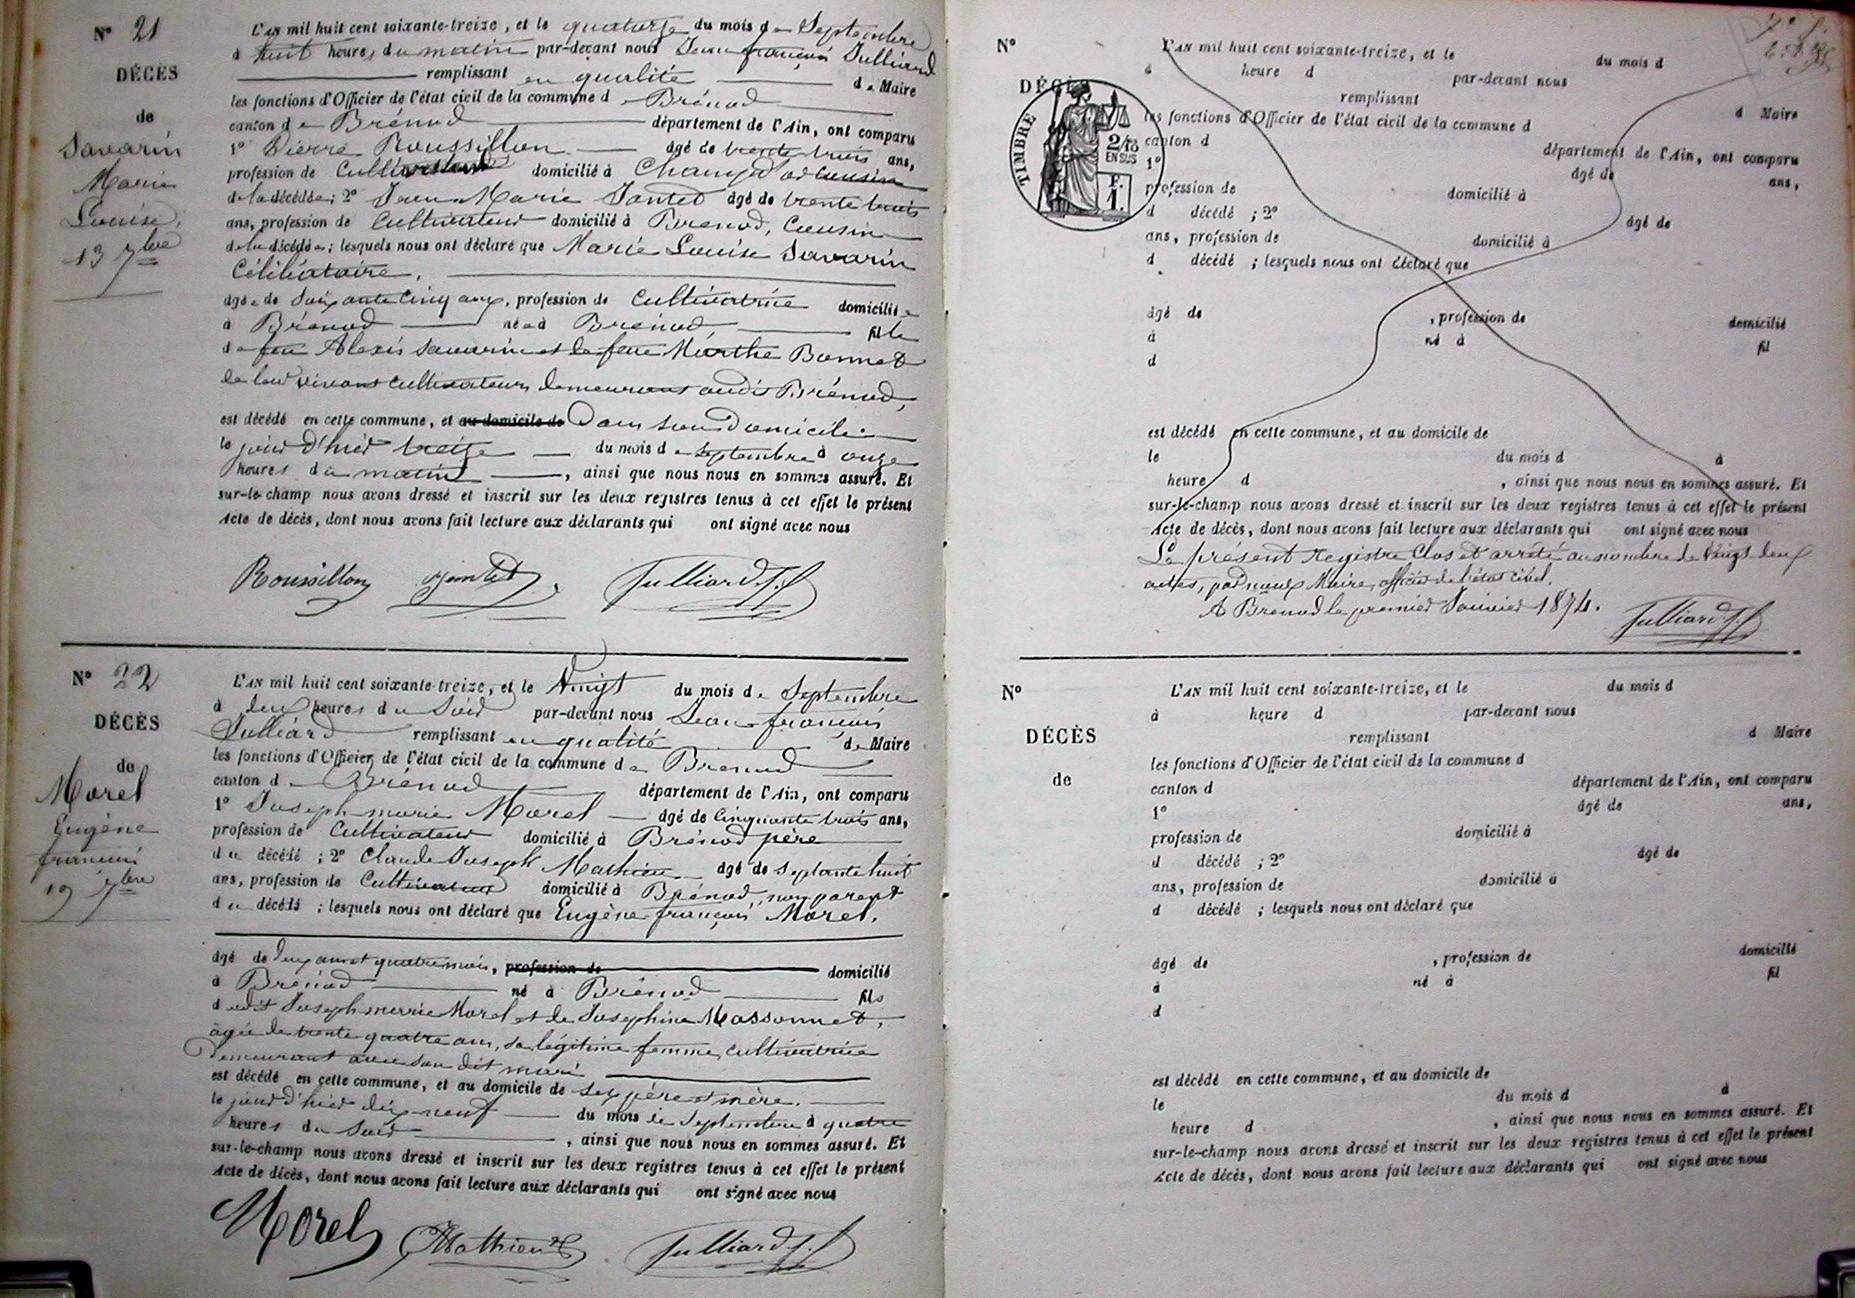 N° 21
DÉCÈS
de
Savarin
Marie
Louise,
13 7bre
L'AN mil huit cent soixante-treize, et le quatorze du mois de Septembre
à huit heures du matin par-devant nous Jean françois Julliard
remplissant en qualité de Maire
les fonctions d'Officier de l'état civil de la commune de Brénod
canton de Brénod département de l'Ain, ont comparu
1° Pierre Roussillon âgé de trente trois ans,
profession de Cultivateur domicilié à cousin
de la décédée ; 2° Jean Marie Jantet âgé de trente trois
ans, profession de Cultivateur domicilié à Brenod, Cousin
de la décédée ; lesquels nous ont déclaré que Marie Louise Savarin
Célibataire,
âgée de Soixante cinq ans, profession de Cultivatrice domiciliée
à Brénod née à Brénod fille
de feu Alexis Savarin et de feue Marthe Bonnet
de leur vivant cultivateurs demeurant audit Brénod,
est décédé en cette commune, et au domicile de Dans son Domicile
le jour d'hier treize du mois de Septembre à onze
heures du matin , ainsi que nous nous en sommes assuré. Et
sur-le-champ nous avons dressé et inscrit sur les deux registres tenus à cet effet le présent
Acte de décès, dont nous avons fait lecture aux déclarants qui ont signé avec nous
Roussillon Jantet Julliard J. f
N° 22
DÉCÈS
de
Morel
Eugène
françois
19 7bre
L'AN mil huit cent soixante-treize, et le Vingt du mois de Septembre
à deux heures du Soir par-devant nous Jean françois
Julliard remplissant en qualité de Maire
les fonctions d'Officier de l'état civil de la commune de Brenod
canton de Brénod département de l'Ain, ont comparu
1° Joseph marie Morel âgé de Cinquante trois ans,
profession de Cultivateur domicilié à Brénod père
du décédé ; 2° Claude Joseph Mathieu âgé de Septante huit
ans, profession de Cultivateur domicilié à Brénod, non parent
du décédé ; lesquels nous ont déclaré que Eugène françois Morel,
âgé de deux ans et quatre mois, profession de domicilié
à Brénod né à Brénod fils
dudit Joseph marie Morel et de Josephine Massonnet,
âgée de trente quatre ans, sa légitime femme, cultivatrice
Demeurant avec son dit mari
est décédé en cette commune, et au domicile de ses père et mère.
le jour d'hier dix-neuf du mois de Septembre à quatre
heures du Soir , ainsi que nous nous en sommes assuré. Et
sur-le-champ nous avons dressé et inscrit sur les deux registres tenus à cet effet le présent
Acte de décès, dont nous avons fait lecture aux déclarants qui ont signé avec nous
Morel Mathieu Julliard J. f
N°
DÉCÈS
TIMBRE
2/10
EN SUS
F.
1.
L'AN mil huit cent soixante-treize, et le du mois d
à heure d par-devant nous
remplissant d Maire
les fonctions d'Officier de l'état civil de la commune d
canton d département de l'Ain, ont comparu
1° âgé de ans,
profession de domicilié à
d décédé ; 2° âgé de
ans, profession de domicilié à
d décédé ; lesquels nous ont déclaré que
âgé de , profession de domicilié
à né à fil
d
est décédé en cette commune, et au domicile de
le du mois d à
heure d , ainsi que nous nous en sommes assuré. Et
sur-le-champ nous avons dressé et inscrit sur les deux registres tenus à cet effet le présent
Acte de décès, dont nous avons fait lecture aux déclarants qui ont signé avec nous
Le présent registre Clos et arrêté au nombre de Vingt deux
actes, par nous Maire, officier de l'état civil.
A Brenod le premier Janvier 1874.
Julliard J. f
N°
DÉCÈS
de
L'AN mil huit cent soixante-treize, et le du mois d
à heure d par-devant nous
remplissant d Maire
les fonctions d'Officier de l'état civil de la commune d
canton d département de l'Ain, ont comparu
1° âgé de ans,
profession de domicilié à
d décédé ; 2° âgé de
ans, profession de domicilié à
d décédé ; lesquels nous ont déclaré que
âgé de , profession de domicilié
à né à fil
d
est décédé en cette commune, et au domicile de
le du mois d à
heure d , ainsi que nous nous en sommes assuré. Et
sur-le-champ nous avons dressé et inscrit sur les deux registres tenus à cet effet le présent
Acte de décès, dont nous avons fait lecture aux déclarants qui ont signé avec nous